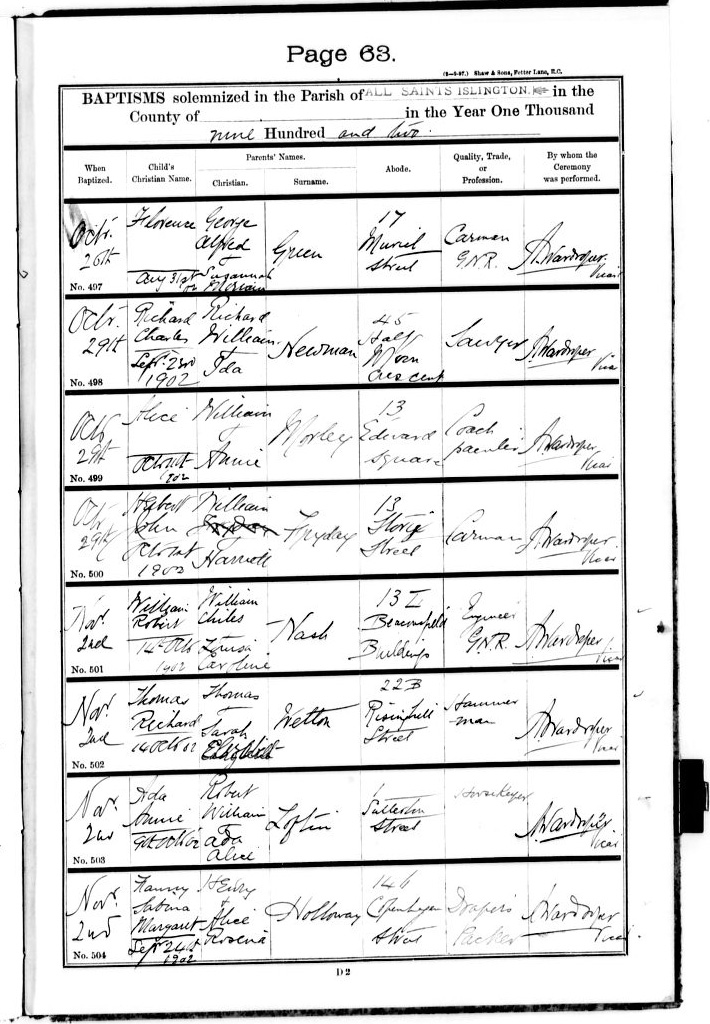 Page 63.
(2—9-97.) Shaw & Sons, Fetter Lane, E.C.
BAPTISMS solemnized in the Parish of ALL SAINTS ISLINGTON. in the
County of in the Year One Thousand
nine Hundred and two.
When Baptized.
Child's Christian Name.
Parents' Names.
Christian.
Surname.
Abode.
Quality, Trade, or Profession.
By whom the Ceremony was performed.
Octr. 26th
No. 497
Florence
Aug 31st 02
George Alfred
& Susannah Miriam
Green
17 Muriel Street
Carman G.N.R.
A. Wardroper. Vicar
Octr. 29th
No. 498
Richard Charles
Sept. 23rd 1902
Richard William
& Ida
Newman
45 Half Moon Crescent
Sawyer
A. Wardroper Vicar
Oct 29th
No. 499
Alice
Oct 1st 1902
William
& Annie
Morley
13 Edward Square
Coach painter
A. Wardroper Vicar
Oct 29th
No. 500
Herbert John
Oct 1st 1902
William
Harriett
Fryday
13 Street
Carman
A. Wardroper. Vicar
Nov. 2nd
No. 501
William Robert
14th Oct 1902
William Chiles
& Louisa Caroline
Nash
13 I Beaconsfield Buildings
Engineer G.N.R.
A. Wardroper Vicar
Nov. 2nd
No. 502
Thomas Richard
14 Oct 02
Thomas
& Sarah Elizabeth
Wetton
22B Risinghill Street
Hammer man
A. Wardroper Vicar
Nov. 2nd
No. 503
Ada Annie
9th Oct 02
Robert William
& Ada Alice
Loftin
1 Fullerton Street
Horsekeeper
A. Wardroper Vicar
Nov. 2nd
No. 504
Fanny Sabina Margaret
Sept 24th 1902
Henry
& Alice Rosena
Holloway
146 Copenhagen Street
Drapers Packer
A. Wardroper Vicar
D 2